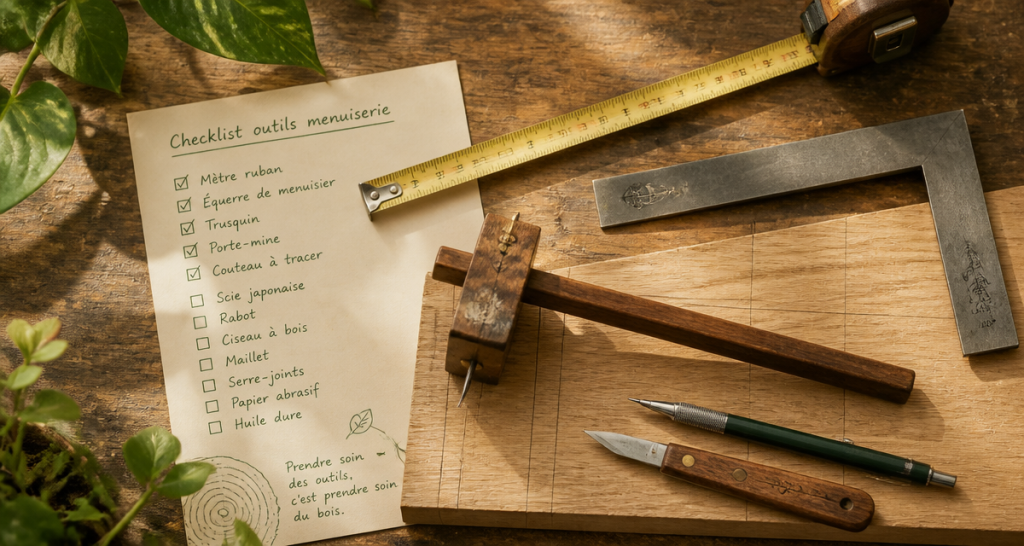 Checklist outils menuiserie
Mètre ruban
Équerre de menuisier
Trusquin
Porte-mine
Couteau à tracer
Scie japonaise
Rabot
Ciseau à bois
Maillet
Serre-joints
Papier abrasif
Huile dure
Prendre soin
des outils,
c'est prendre soin
du bois.